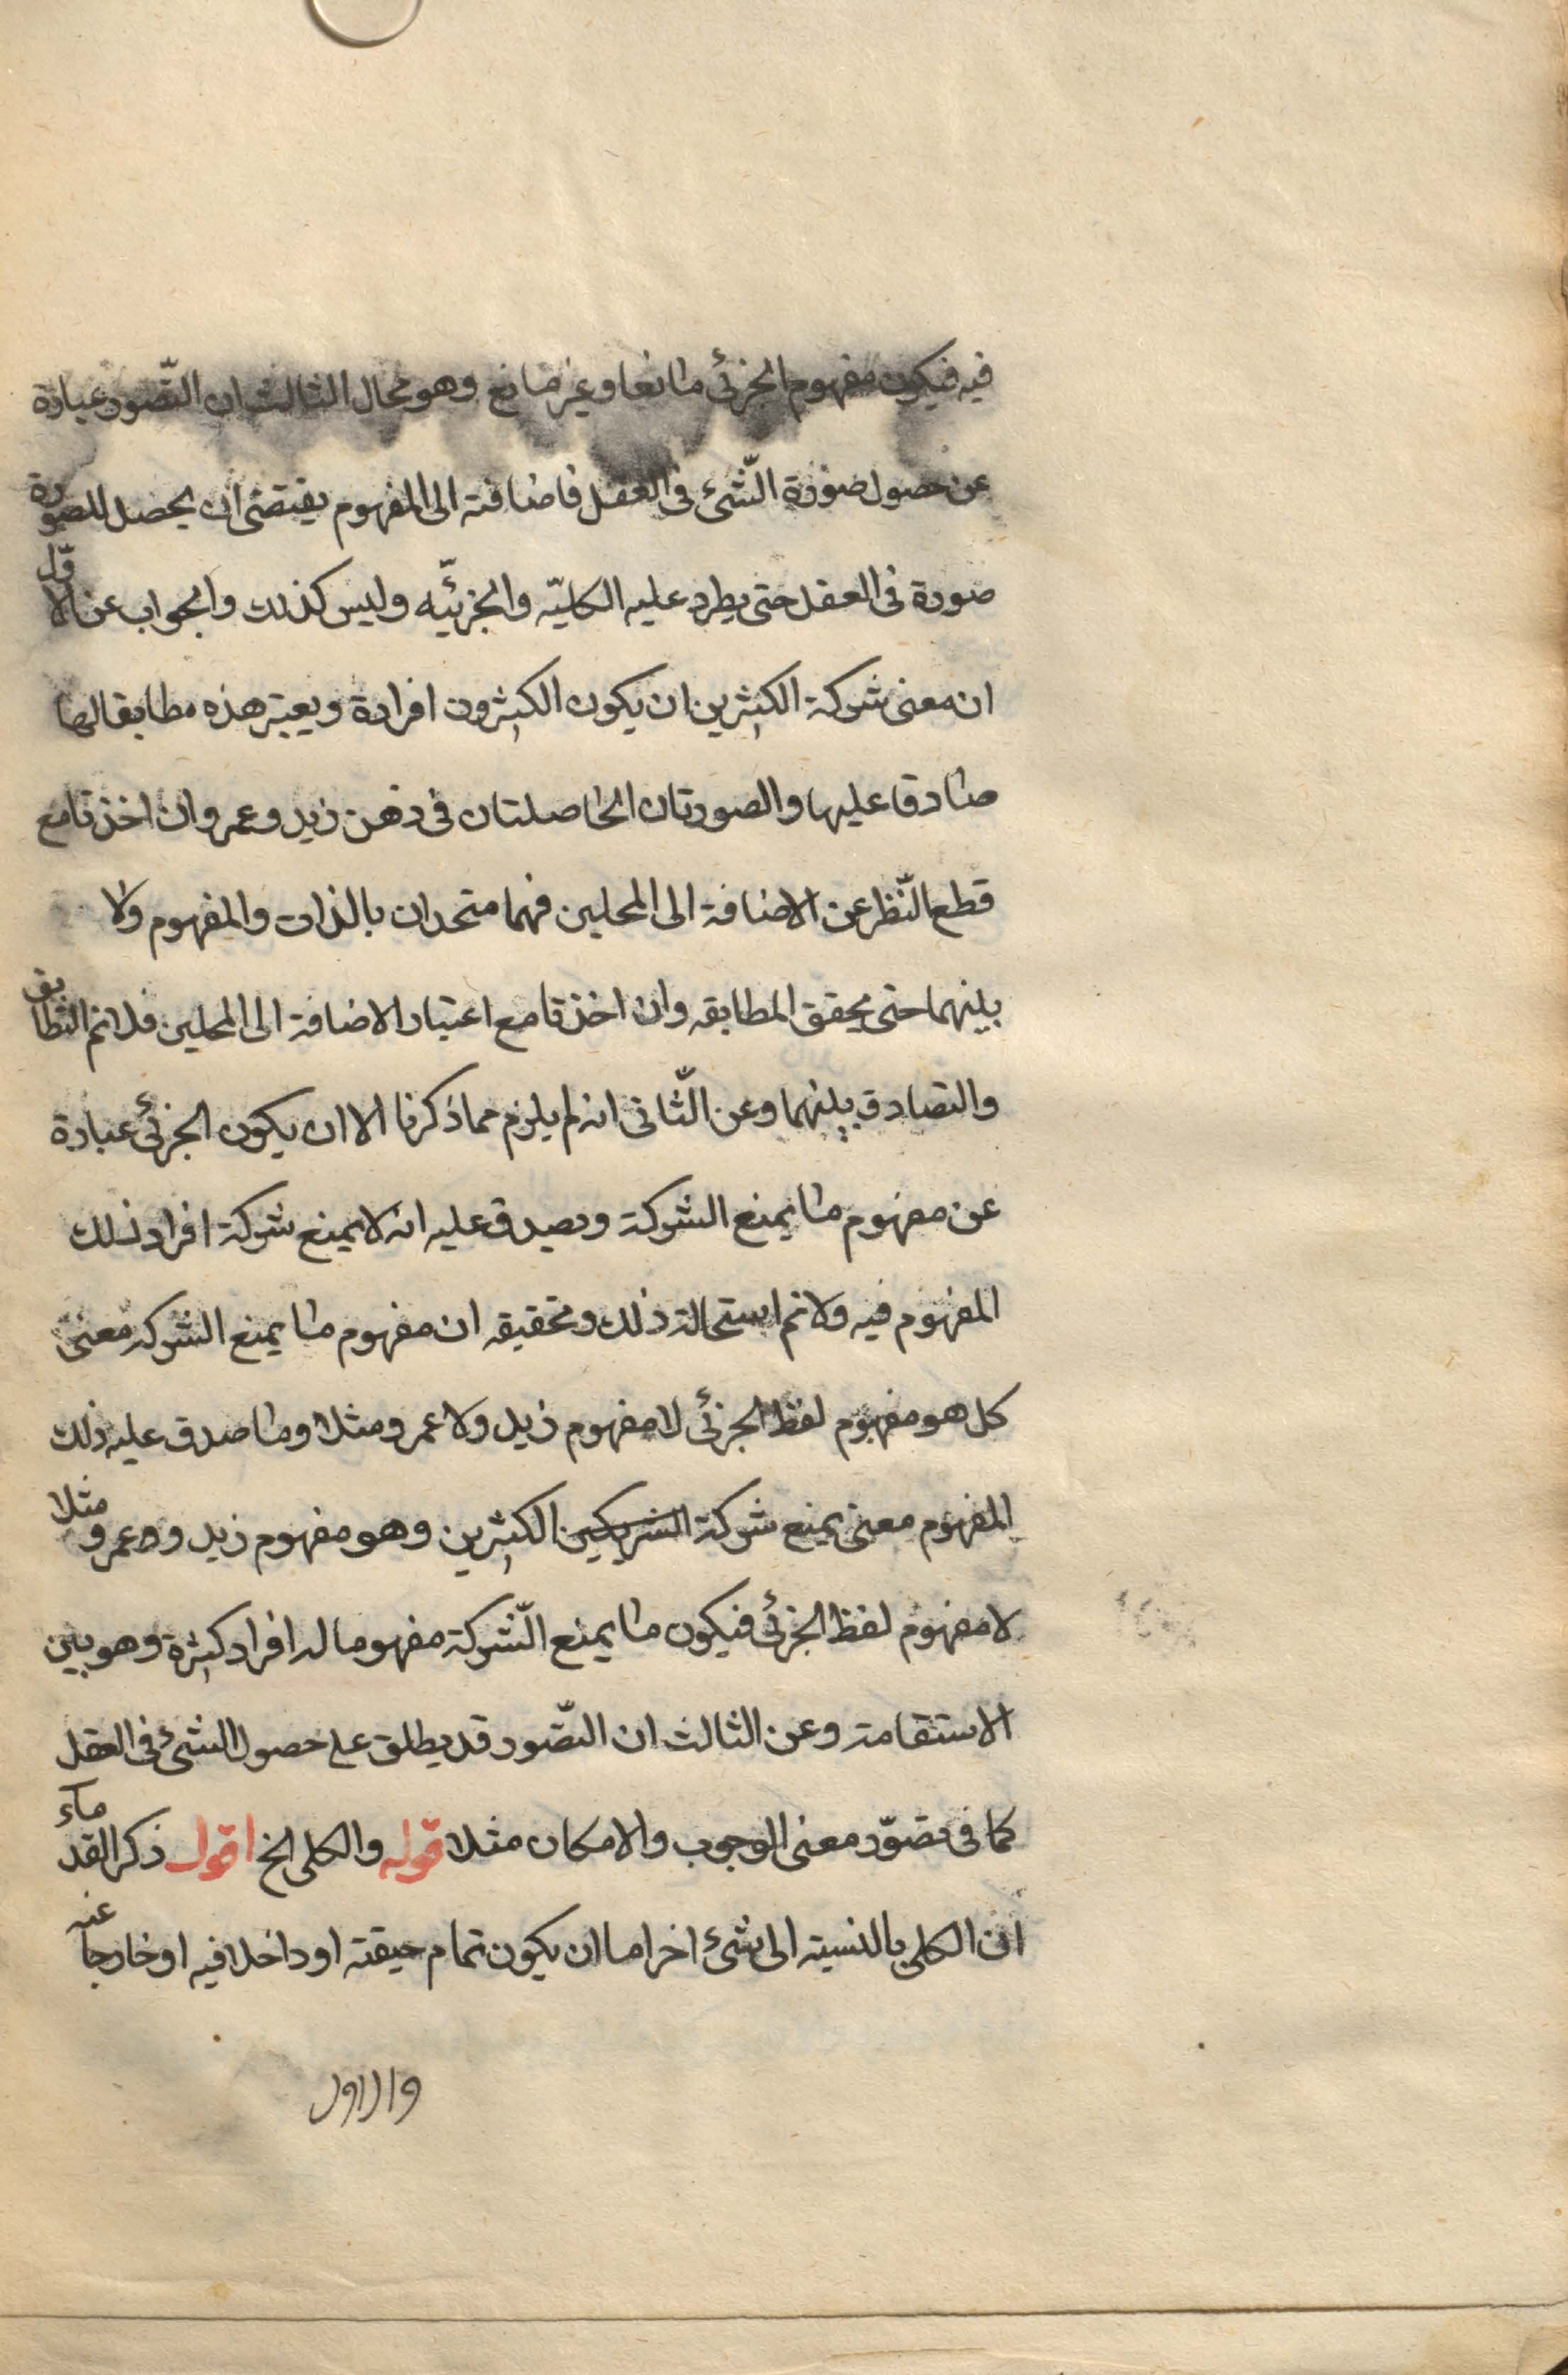 فيه فيكون مفهوم الجزئى مانعا وغير مانع وهو محال الثالث ان التّصور عبارة
عن حصول صورة الشّئ فى العقل فاضافته الى المفهوم يقتضى ان يحصل للصورة
صورة فى العقل حتى يطرد عليه الكليّه والجزئيّه وليس كذلك والجواب عن الاوّل
ان معنى شركة الكثيرين ان يكون الكثيرون افراده ويعتبر هذه مطابقا لها
صادقا عليها والصورتان الحاصلتان فى ذهن زيد وعمرو ان اخذتا مع
قطع النّظر عن الاضافة الى المحلين فهما متحدان بالذات والمفهوم ولا
بينهما حتى يحقق المطابقه وان اخذتا مع اعتبار الاضافة الى المحلين فلانم التطابق
والتصادق بينهما وعن الثّانى انه لم يلزم مما ذكرنا الا ان يكون الجزئى عبارة
عن مفهوم ما يمنع الشركة ويصدق عليه انه لا يمنع شركة افراد ذلك
المفهوم فيه ولانم استحالة ذلك وتحقيقه ان مفهوم ما يمنع الشركه معنى
كل هو مفهوم لفظ الجزئى لا مفهوم زيد ولا عمرو مثلا وما صدق عليه ذلك
المفهوم معنى يمنع شركة الشريكين الكثيرين وهو مفهوم زيد وعمرو مثلا
لا مفهوم لفظ الجزئى فيكون ما يمنع الشّركة مفهوما له افراد كثيرة وهو بين
الاستقامة وعن الثالث ان التّصور قد يطلق على حصول الشئ فى العقل
كما فى تصوّر معنى الوجوب والامكان مثلا قوله والكلى الخ اقول ذكر القدماء
ان الكلى بالنسبة الى شئ اخر اما ان يكون تمام حيقته او داخلا فيه او خارجا عنه
والاول